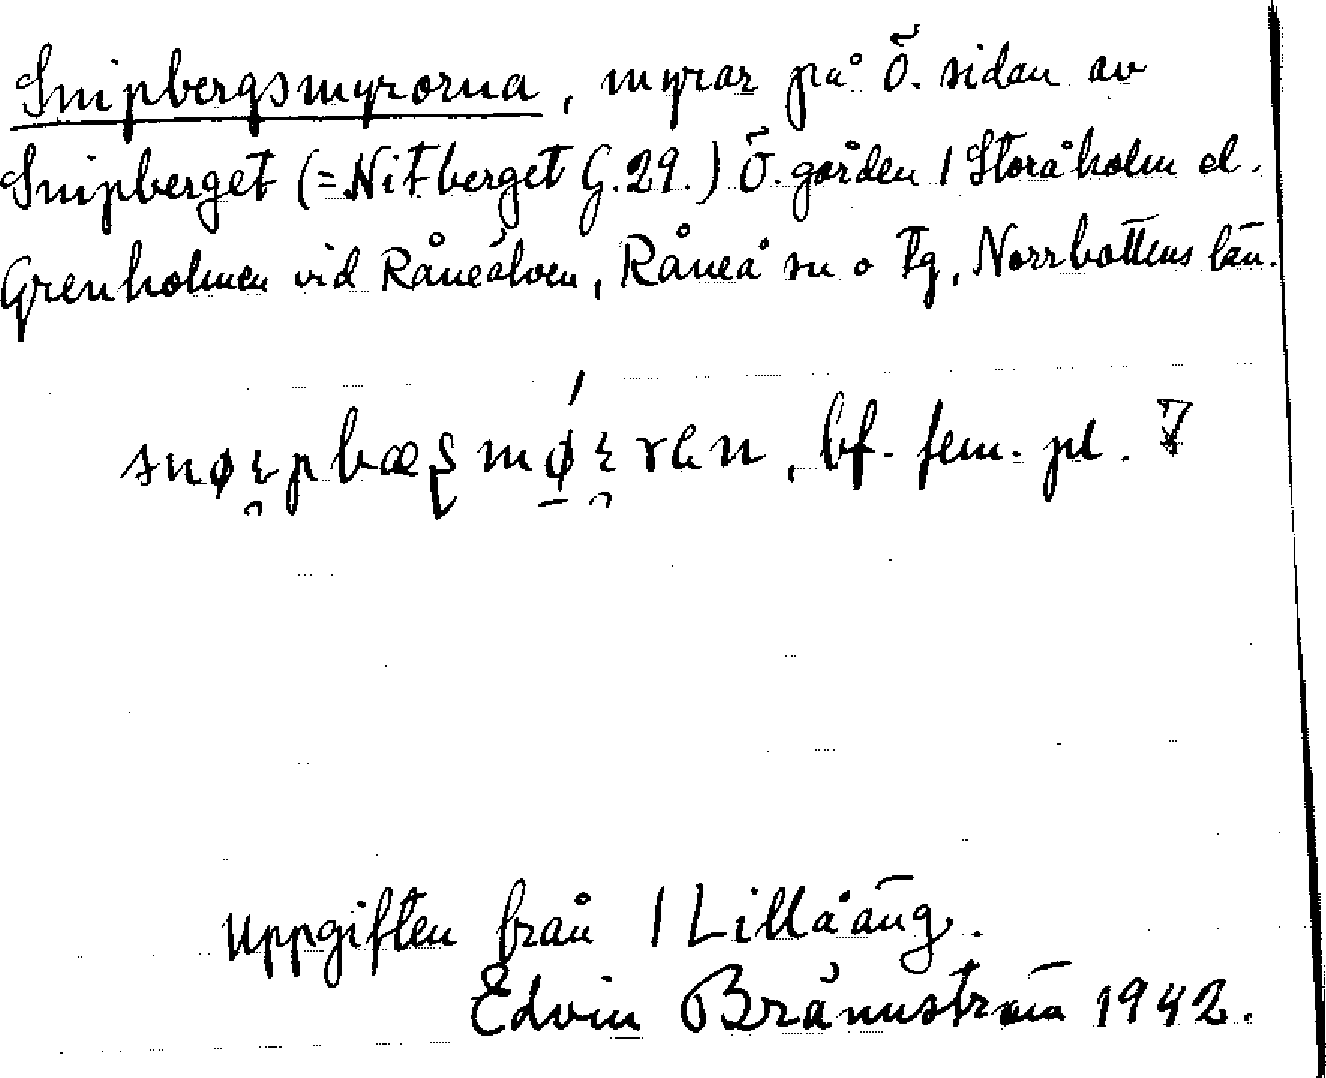 Snipbergsmyrorna, myrar på Ö. sidan av
Snipberget (=Nitberget G.29.) Ö. gården 1 Storåholm el.
Grenholmen vid Råneälven, Råneå sn o tg, Norrbottens län.
bf. fem. pl.
Uppgiften från 1 Lillåäng.
Edvin Brännström 1942.